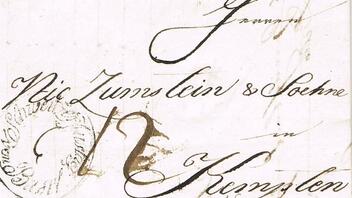 Herren
Nic Zumstein & Soehne
12
in
Kempten